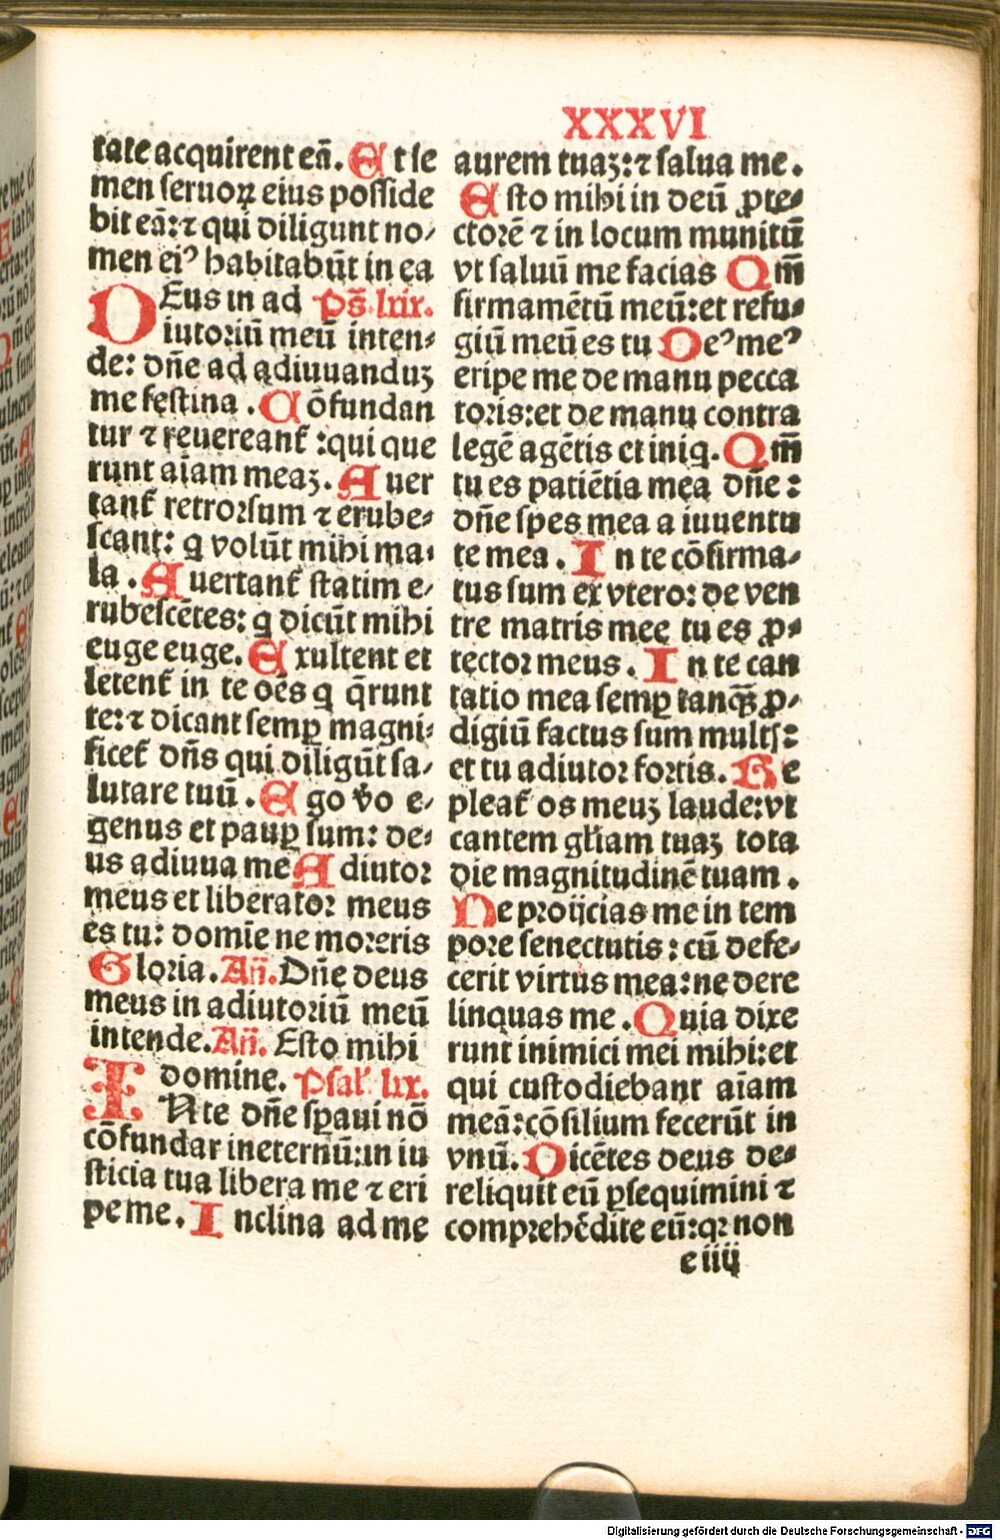 XXXVI
tate acquirent eā. Et se
men seruoꝝ eius posside
bit eā: ⁊ qui diligunt no⸗
men eiꝰ habitabūt in ea
DEus in ad Ps̄. lxix.
iutoriū meū inten⸗
de: dn̄e ad adiuuanduꝫ
me festina. Cōfundan
tur ⁊ reuereant᷑: qui que
runt aīam meaꝫ. Auer
tant᷑ retrorsum ⁊ erube⸗
scant: q volūt mihi ma⸗
la. Auertant᷑ statim e⸗
rubescētes: q dicūt mihi
euge euge. Exultent et
letent᷑ in te oēs q q̄runt
te: ⁊ dicant semꝑ magni⸗
ficet᷑ dn̄s qui diligūt sa⸗
lutare tuū. Ego v̄o e⸗
genus et pauꝑ sum: de⸗
us adiuua me Adiutor
meus et liberator meus
es tu: domīe ne moreris
Gloria. An̄. Dn̄e deus
meus in adiutoriū meū
intende. An̄. Esto mihi
domine. Psal᷑. lxx.
INte dn̄e sꝑaui nō
cōfundar in eternū: in iu
sticia tua libera me ⁊ eri
pe me. Inclina ad me
aurem tuaꝫ: ⁊ salua me.
Esto mihi in deū ꝓte⸗
ctorē ⁊ in locum munitū
vt saluū me facias Qm̄
firmamētū meū: et refu⸗
giū meū es tu Deꝰ meꝰ
eripe me de manu pecca
toris: et de manu contra
legē agētis et iniq. Qm̄
tu es patiētia mea dn̄e:
dn̄e spes mea a iuuentu
te mea. In te cōfirma⸗
tus sum ex vtero: de ven
tre matris mee tu es ꝓ⸗
tector meus. In te can
tatio mea semꝑ tanq̄ꝫ ꝓ⸗
digiū factus sum multꝭ:
et tu adiutor fortis. Re
pleat᷑ os meuꝫ laude: vt
cantem gl̄iam tuaꝫ tota
die magnitudinē tuam.
Ne proijcias me in tem
pore senectutis: cū defe⸗
cerit virtus mea: ne dere
linquas me. Quia dixe
runt inimici mei mihi: et
qui custodiebant aīam
meā: cōsilium fecerūt in
vnū. Dicētes deus de⸗
reliquit eū ꝑsequimini ⁊
comprehēdite eū: qꝛ non
e iiij
Digitalisierung gefördert durch die Deutsche Forschungsgemeinschaft - DFG